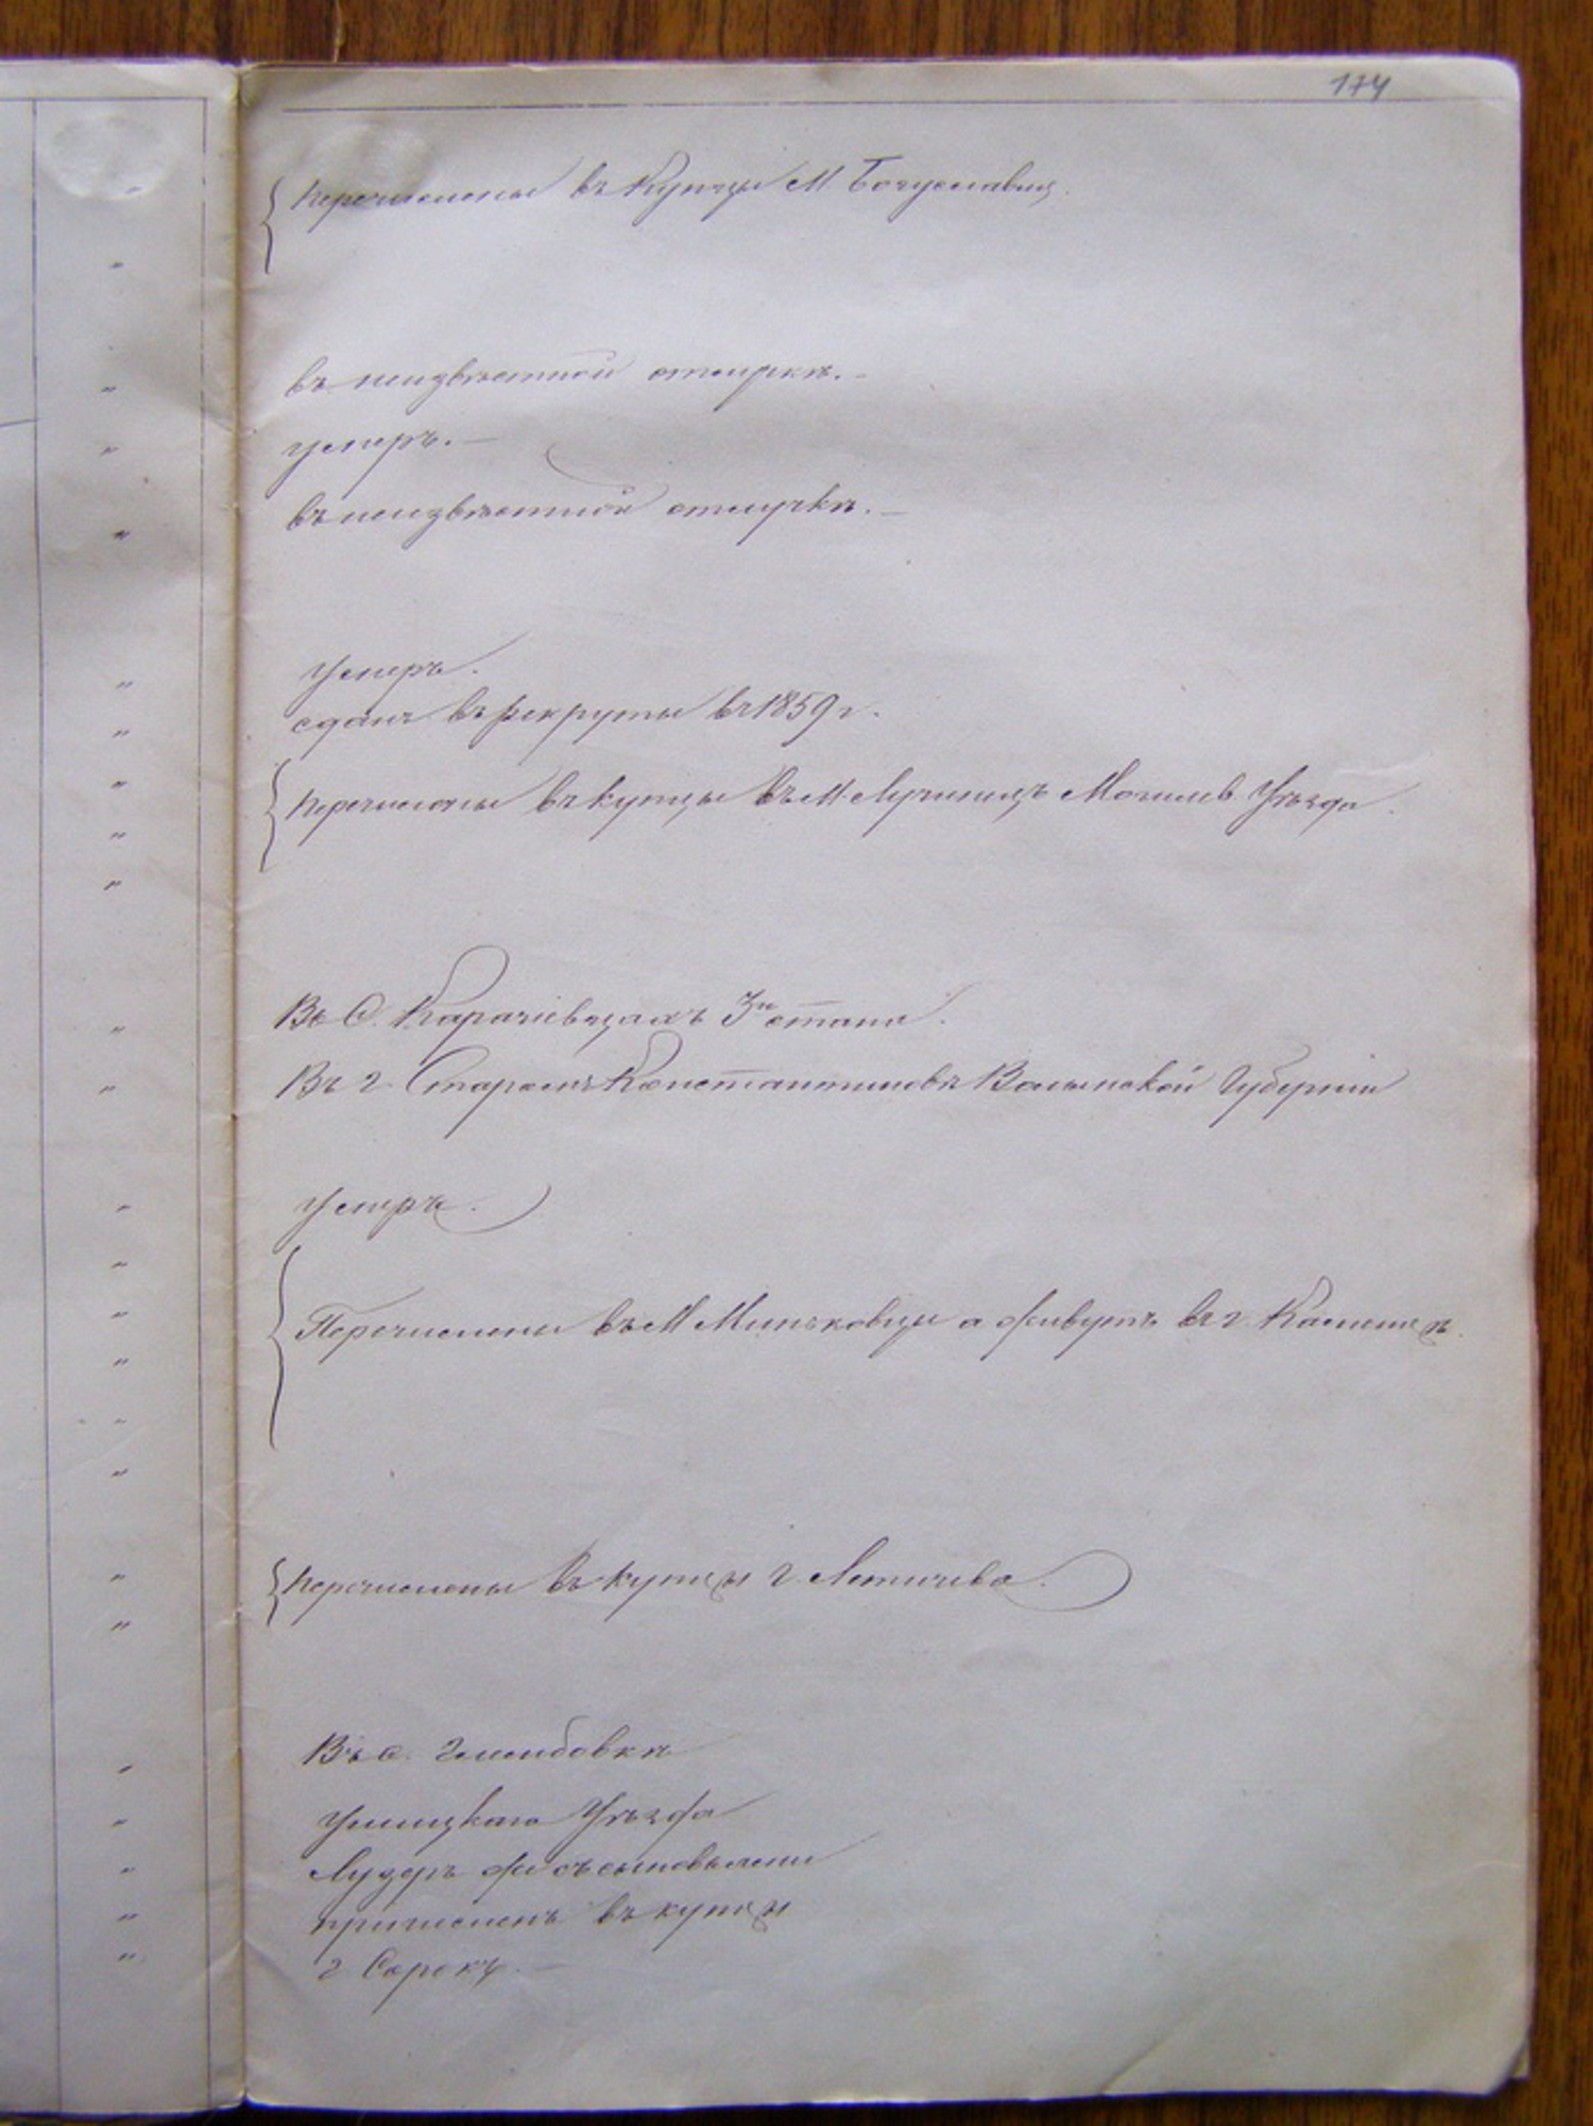 174
перечислены въ Купцы М. Богуславц.
въ неизвѣстной отлучкѣ.-
умеръ.-
въ неизвѣстной отлучкѣ.-
умеръ.
сданъ въ рекруты въ 1859 г.
перечислены въ купцы въ М. Лучинецъ Могилев. Уѣзда.
Въ С. Карачіевцахъ 3го стана.
Въ г. Старомъ Константиновѣ Волынской Губерніи
умеръ.
Перечислены въ М Миньковцы а живутъ въ г. Каменцѣ.
перечислены въ купцы г. Летичева.
Въ с. Глембовкѣ
Ушицкаго Уѣзда
Лузеръ же съ сыновьями
причисленъ въ купцы
г Сорокъ.-